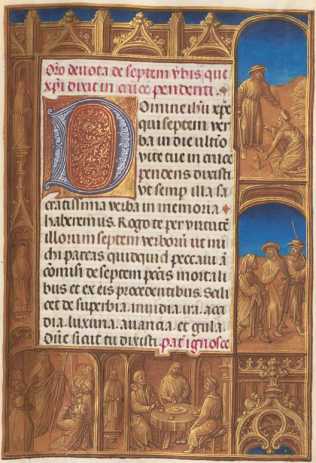 Oro deuota de septem v̄bis que
xp̄s dixit in cruce pendenti
Domine ih̄u xp̄e
qui septem ver
ba in die ultīo
vite tue in cruce
pendens dixisti
⁊ vt semp illa sa
cratissima verba in memoria
haberemus. Rogo te per virtutē
illorum septem verborū ut mi
chi parcas quidquid peccaui ⁊
cōmisi de septem pctīs mortali
bus et ex eis procedentibus. Scili
cet de superbia. inuidia. ira. acci
dia. luxuria. auaricia. et gula.
Dn̄e sicut tu dixisti. pat̄ ignosce